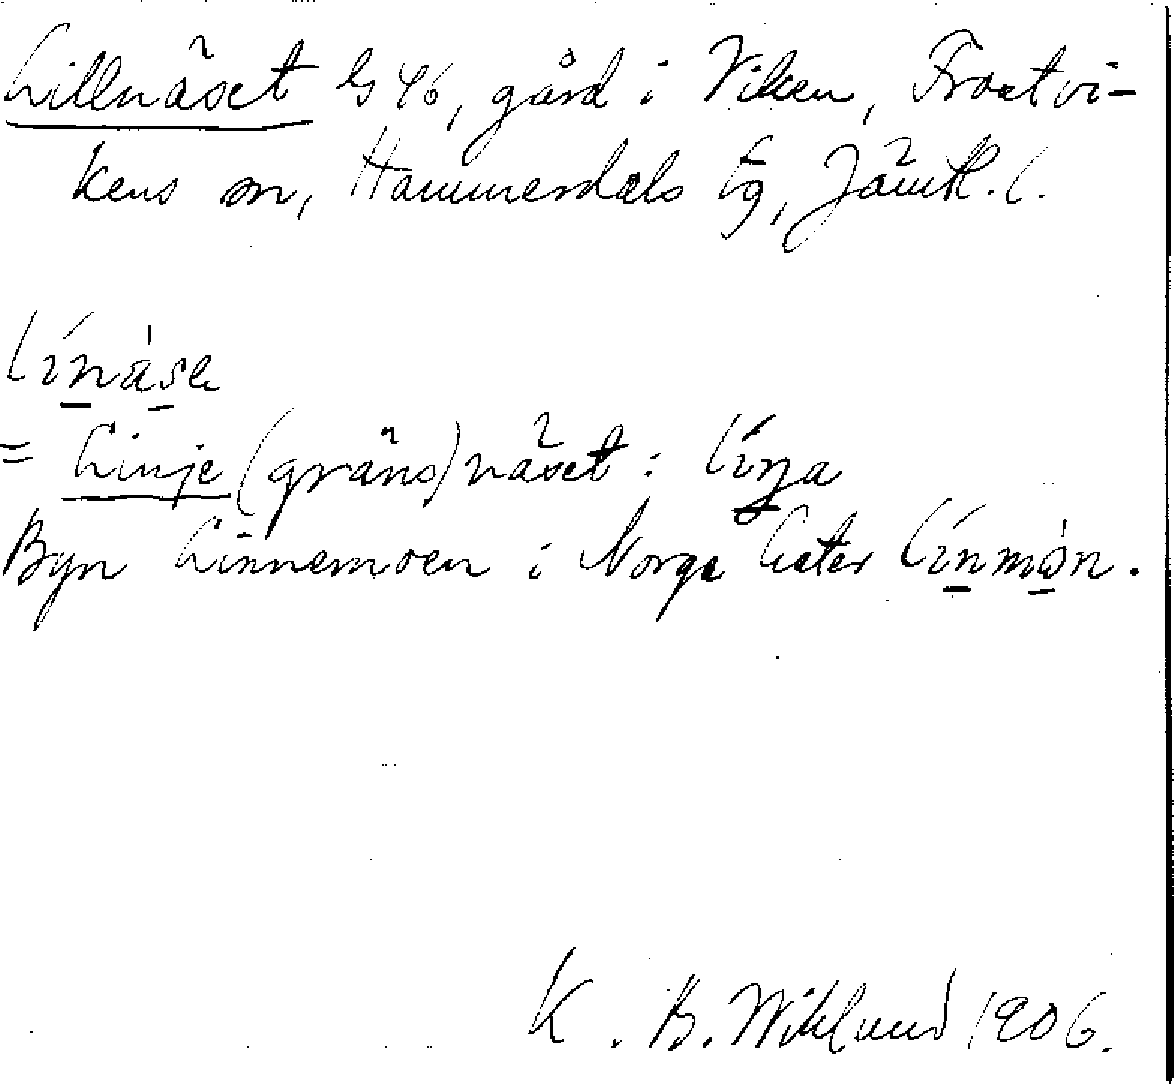 Lillnäset G 46, gård i Viken, Frostvi-
kens sn, Hammerdals tg, Jämtl. l.
línàsε
= Linje (gräns) näset : línja
Byn Linnemoen i Norge heter línmòn.
K. B. Wiklund 1906.